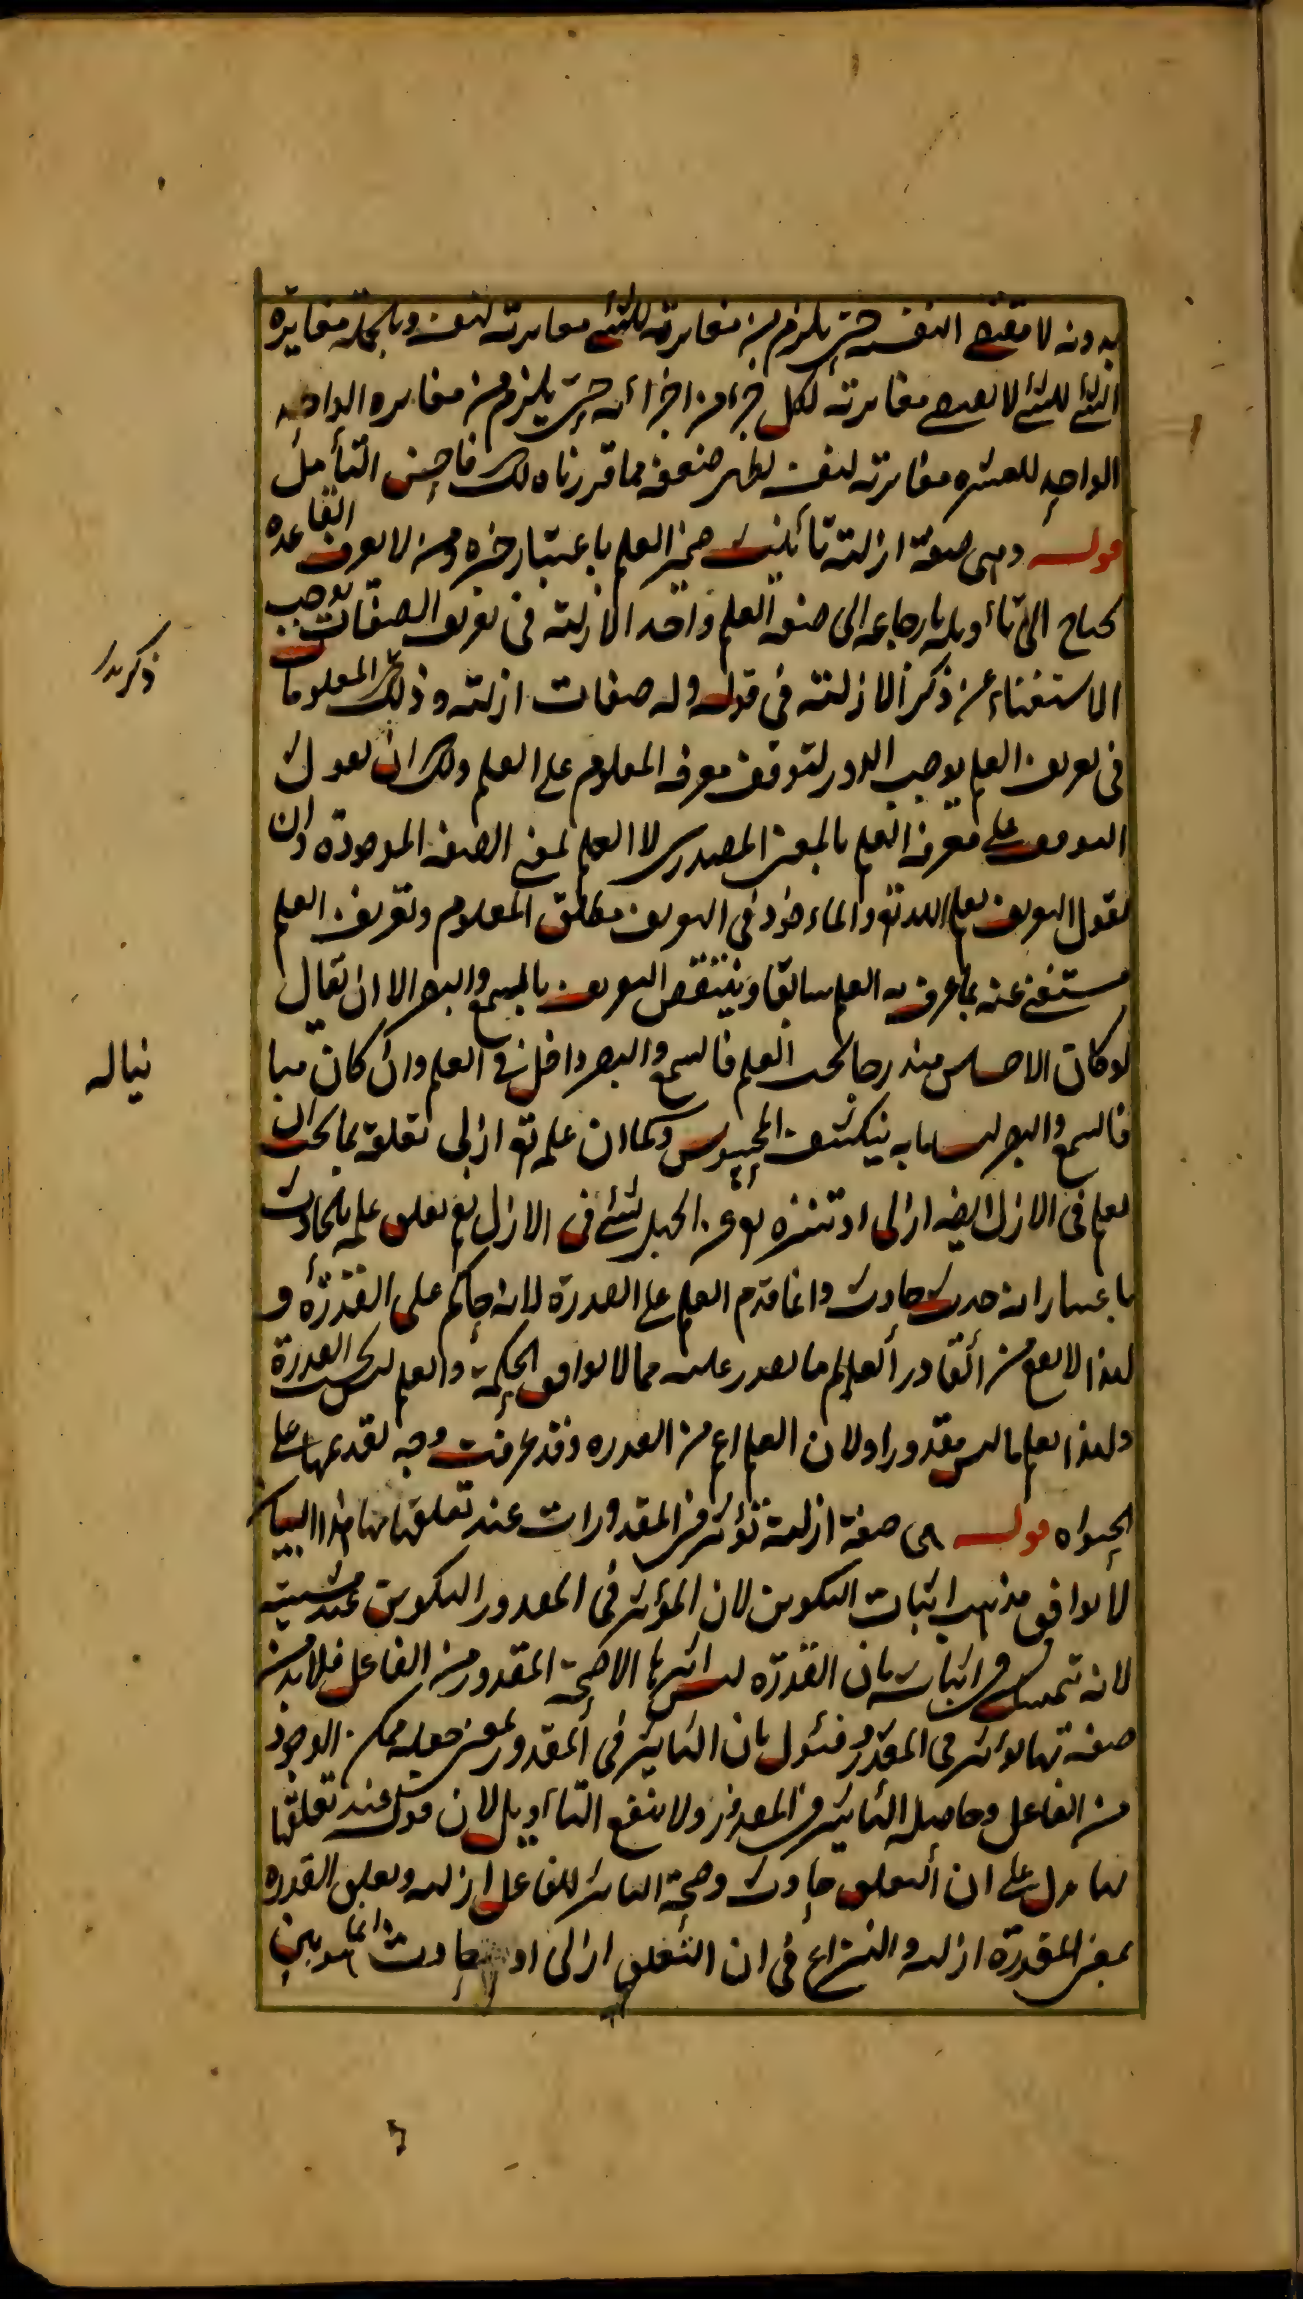 بدونه لا مقتضى النفسه حتى يلزم من مغايرته للشئ مغايرته لنفسه وبالجملة مغايرة
الشئ للشئ لا يقتضى مغايرته لكل جزء من اجزائه حتى يلزم من مغايره الواحد
الواحد للعشره مغايرته لنفسه يظهر ضعفه مما قررناه لك فاحسن التأمل
قوله وهى صفة ازلية تأنيث ضمير العلم باعتبار خبره ومن لا يعرف القاعده
يحتاج الى تأويله بارجاعه الى صفة العلم واخذ الازلية فى تعريف الصفات يوجب
الاستغناء عن ذكر الازلية فى قوله وله صفات ازلية وذكر المعلومات
فى تعريف العلم يوجب الدور لتوقف معرفه المعلوم على العلم ولك ان تقول
التوقف على معرفة العلم بالمعنى المصدرى لا العلم بمعنى الصفة الموجودة وان
تقول التعريف لعلم الله تعالى والمأخوذ فى التعريف مطلق المعلوم وتعريف العلم
مستغنى عنه بما عرف به العلم سابقا وينتقض التعريف بالسمع والبصر الا ان يقال
لو كان الاحساس مندرجا تحت العلم فالسمع والبصر داخل فى العلم وان كان مباينا له
فالسمع والبصر ليسا مابه ينكشف المحسوس وكما ان علمه تعالى ازلى تعلقه بما يجب ان
يعلم فى الازل ايضا ازلى اذ تنزه تعالى عن الجهل بشئ فى الازل نعم تعلق علمه بالحادث
باعتبار انه حدث حادث وانما قدم العلم على القدرة لانه حاكم على القدرة و
لهذا لا يقع من القادر العالم ما يقدر عليه مما لا يوافق الحكمة والعلم ليس تحت القدرة
ولهذا يعلم ما ليس مقدورا ولان العلم اعم من القدره وقد عرفت وجه تقديمهما على
الحيواه قوله هى صفة ازلية تؤثر فى المقدورات عند تعلقها بها هذا البيان
لا يوافق مذهب اثبات التكوين لان المؤثر فى المقدور التكوين عند مثبته
لانه تمسك فى اثباته بان القدرة ليس اثرها الا صحة المقدور من الفاعل فلا بد من
صفة بها يؤثر فى المقدور فنئول بان التاثير فى المقدور بمعنى جعله ممكن الوجود
من الفاعل وحاصله التأثير فى المقدور ولا ينفع التأويل لان قوله عند تعلقها
بها يدل على ان التعلق حادث وصحة التأثير للفاعل ازلية وتعلق القدره
بمعنى المقدرة ازلية والنزاع فى ان التعلق ازلى او حادث انما هو بين